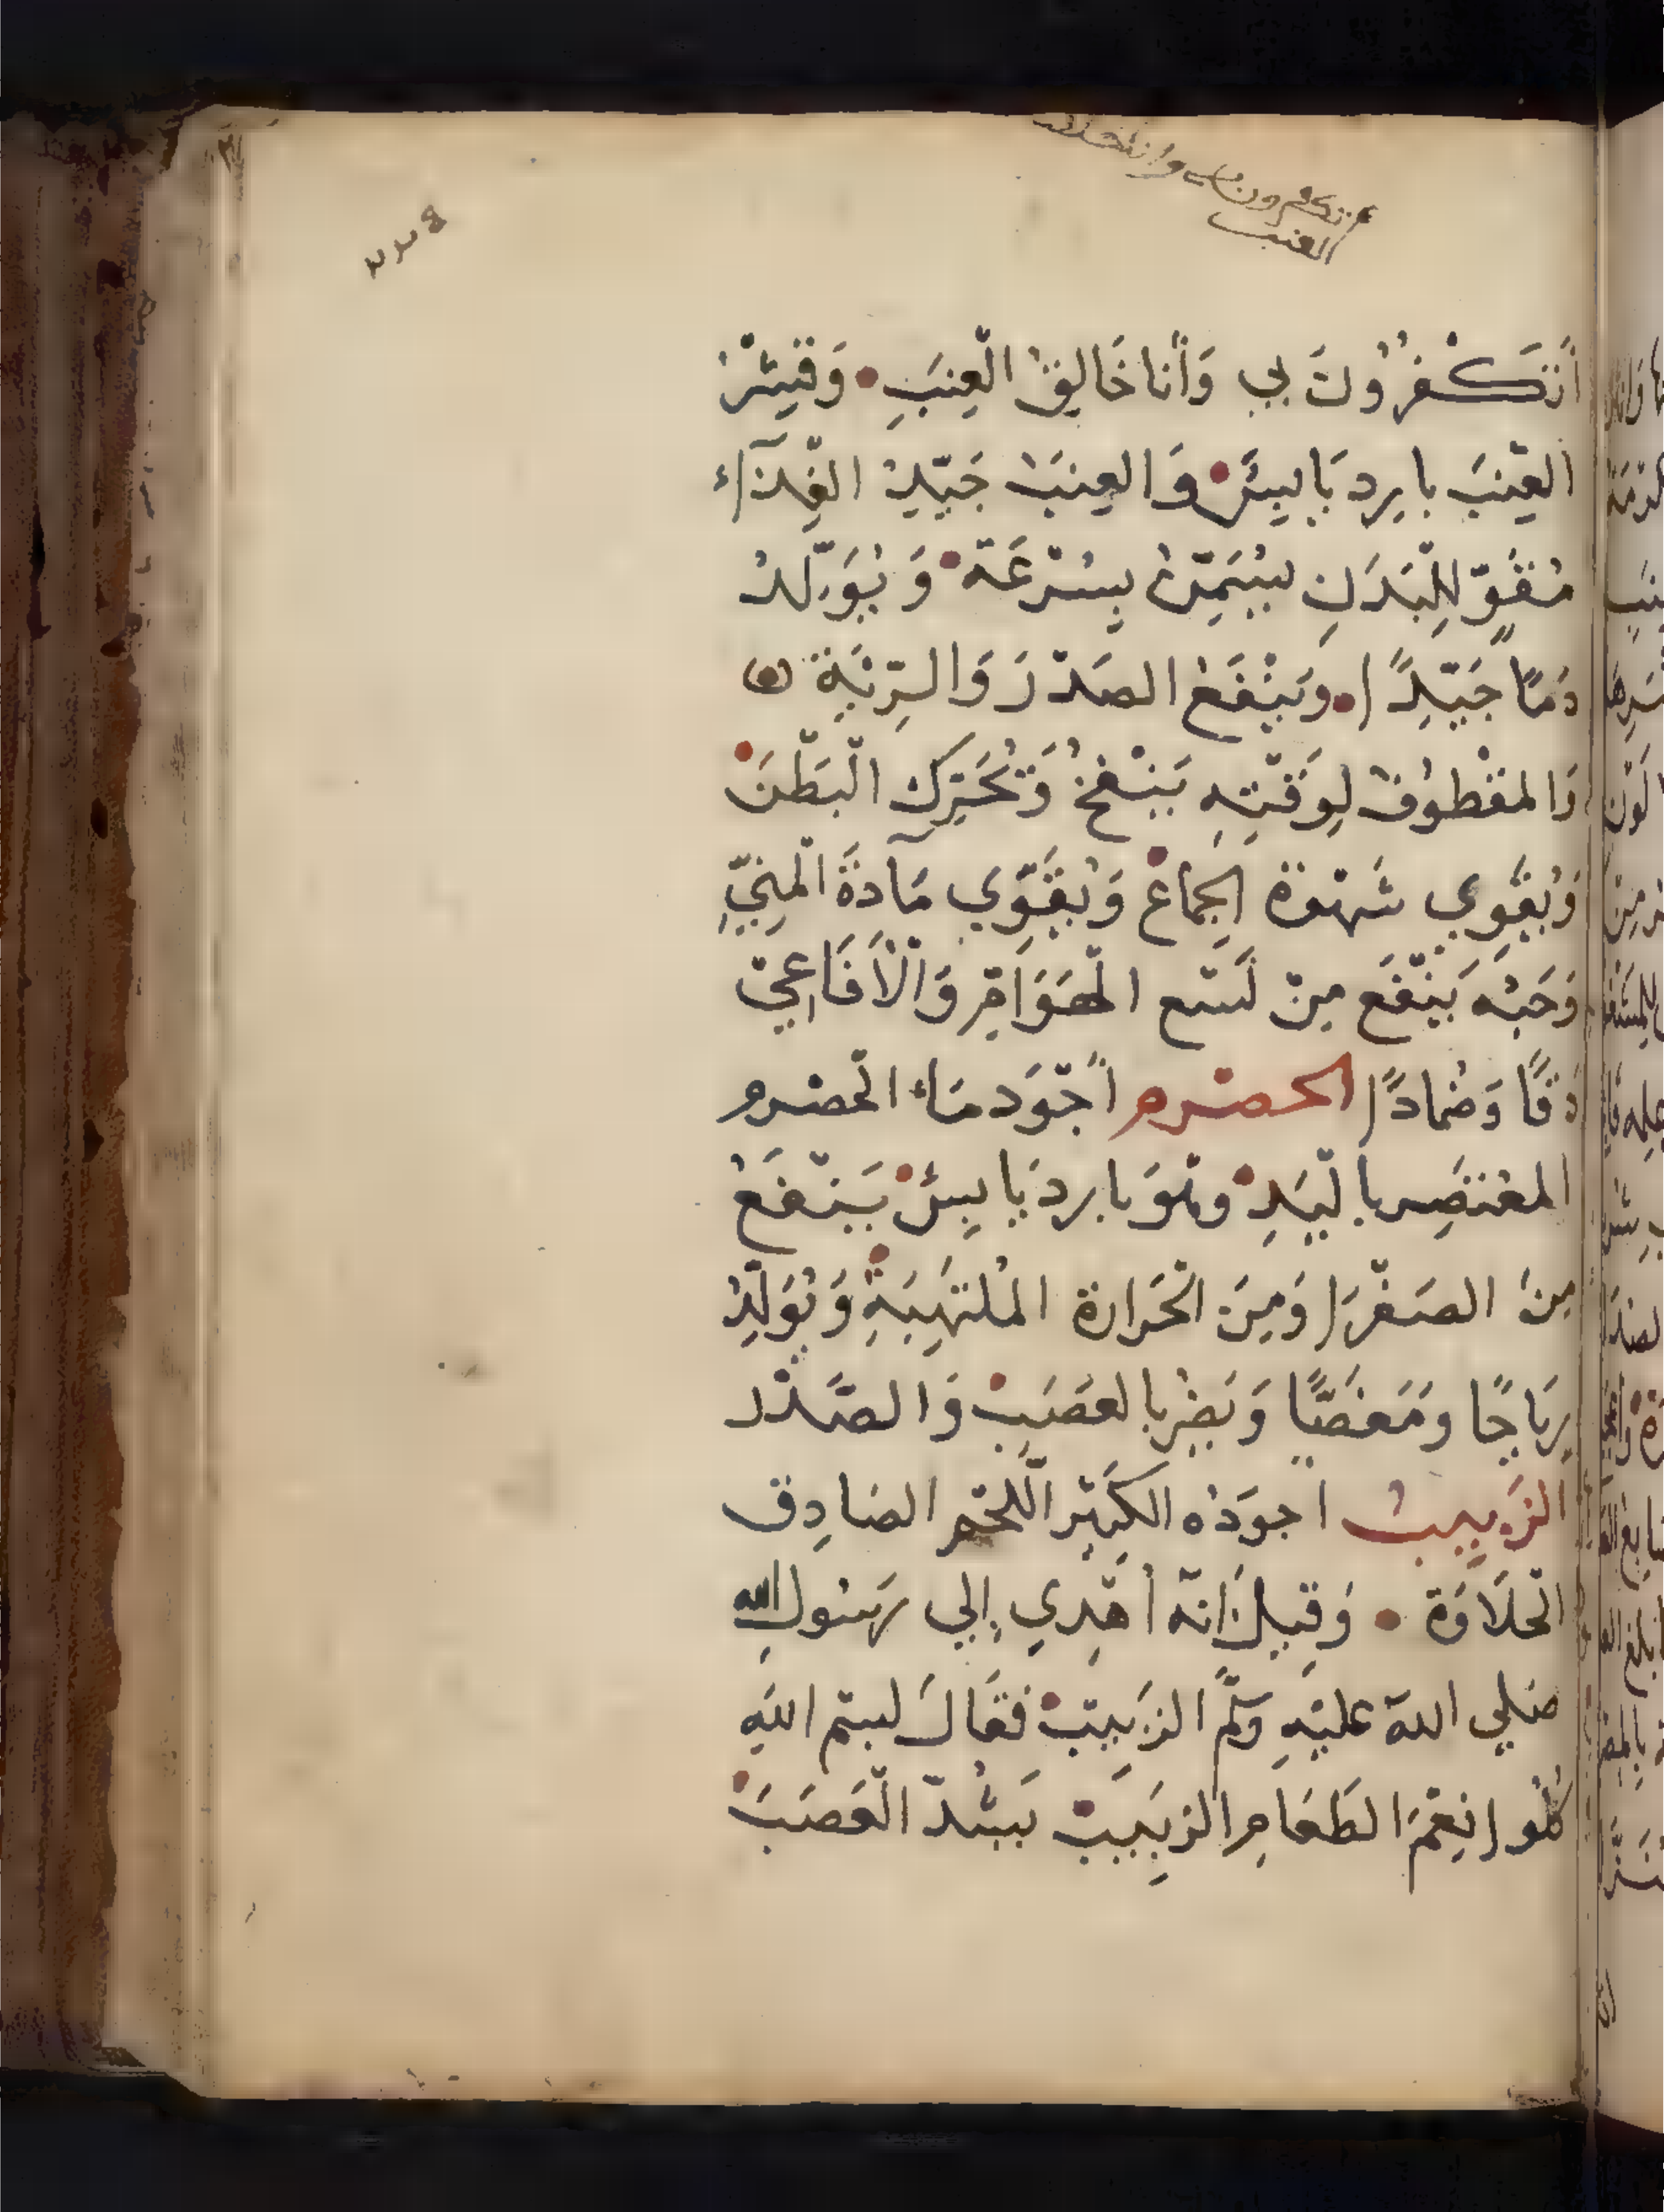 أتكفرون بي وانا خالق
العنب
أَتَكْفُرُونَ بي وَأَنا خَالِقُ الْعِنَبِ • وَقِشْرُ
العِنَبِ بارِد يَابِسٌ • وَالعِنَبُ جَيِّدُ الغِذَآء
مُقَوٍّ لِلْبَدَنِ يُسَمِّنُ بِسُرْعَة • وَيُوَلِّدُ
دَمًا جَيِّدًا • وَيَنْفَعُ الصَدْرَ وَالرِّئَةِ
وَالمقْطوُفُ لِوَقْتِهِ يَنْفخُ وَيُحَرِّك الْبَطْنَ •
وَيُقَوِي شَهْوَة الجِمَاعْ • وَيُقَوِّي مَآدَةَ الْمَنِيِّ
وَحَبُه يَنْفَع مِنْ لَسْع الْهَوَامِّ وَالْأَفَاعِيْ
دَقًا وَضمَادًا الحصْرم أَجْوَد مَاء الْحصْرم
المعْتصَِر بالْيَدِ • وهْوَ بارد يَابِسْ • يَنْفَعُ
مِنَ الصَفْرَا وَمِنَ الْحَرارة المُلْتَهِبَةِ • وَيُوَلِّدُ
رِيَاحًا ومَغَصًا وَيَضُِر بالعَصَبِ • وَالصَّدْر
الزَبِيبُ اجوَدُه الكَبِيْر الْلحْم الصَادِق
الْحَلَاوَة • وَقِيلَ إنَه أُهْدِي إِلي رَسُولِ الله
صَلي الله عليْهِ وَسَلَّمَ الزَبِيبْ • فقَالَ بسْم اللهِ
كُلُوا نِعْمَ الطَعَامِ الزَبِيَبْ يَشدّ الْعَصَبَ •